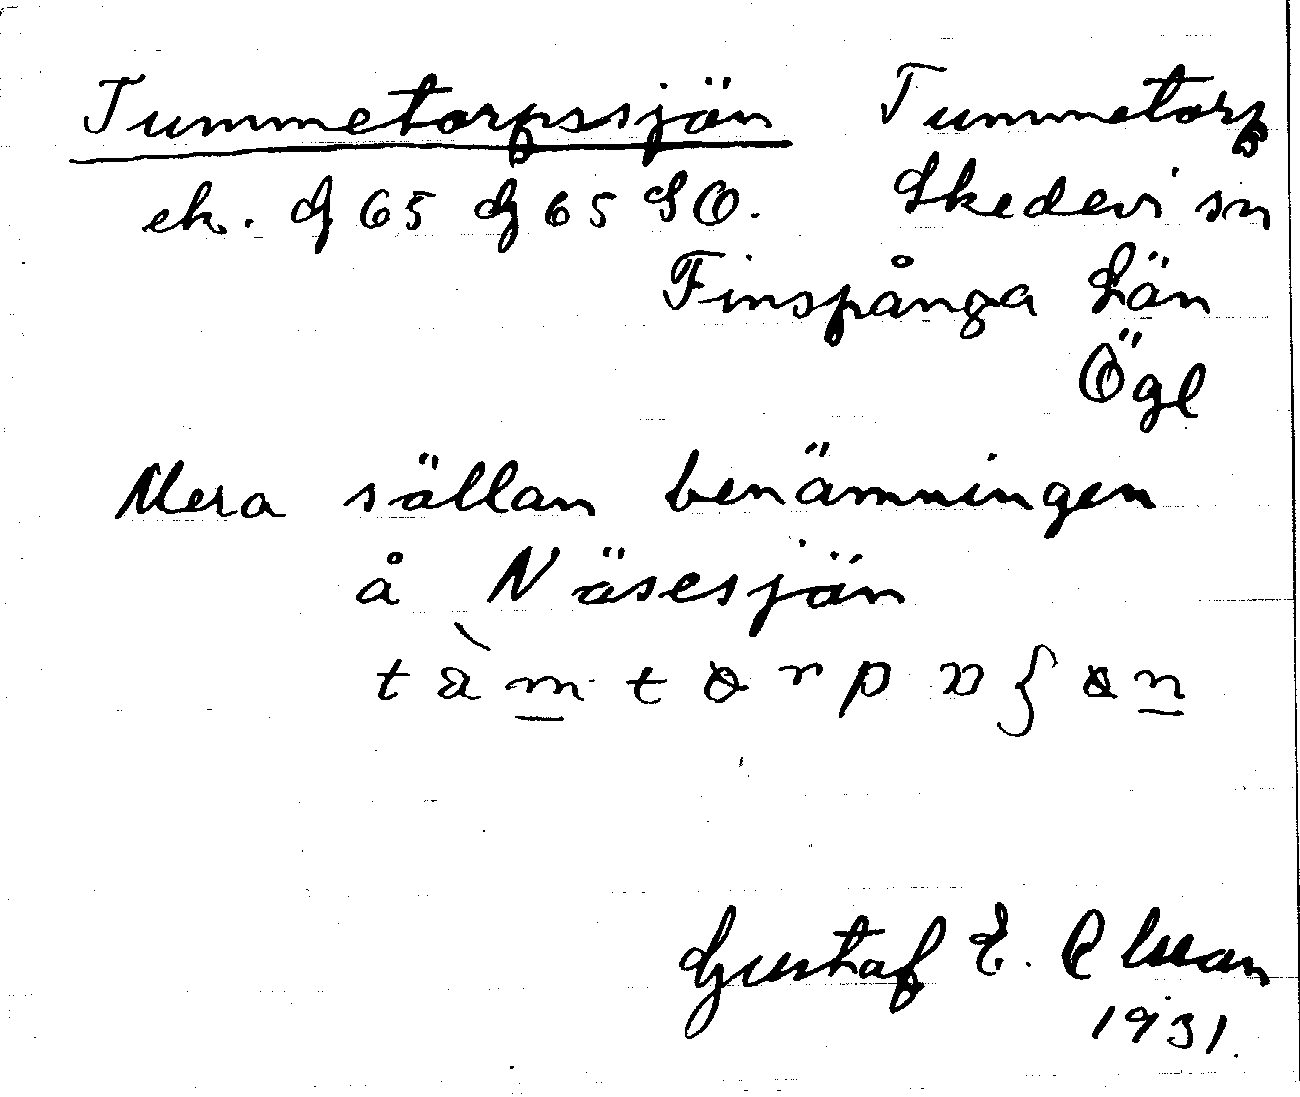 Tummetorpssjön Tummetorp
ek. G 65 G 65 SO. Skedevi sn
Finspånga Län
Ögl
Mera sällan benämningen
å Näsesjön
Gustaf E. Olsson
1931.